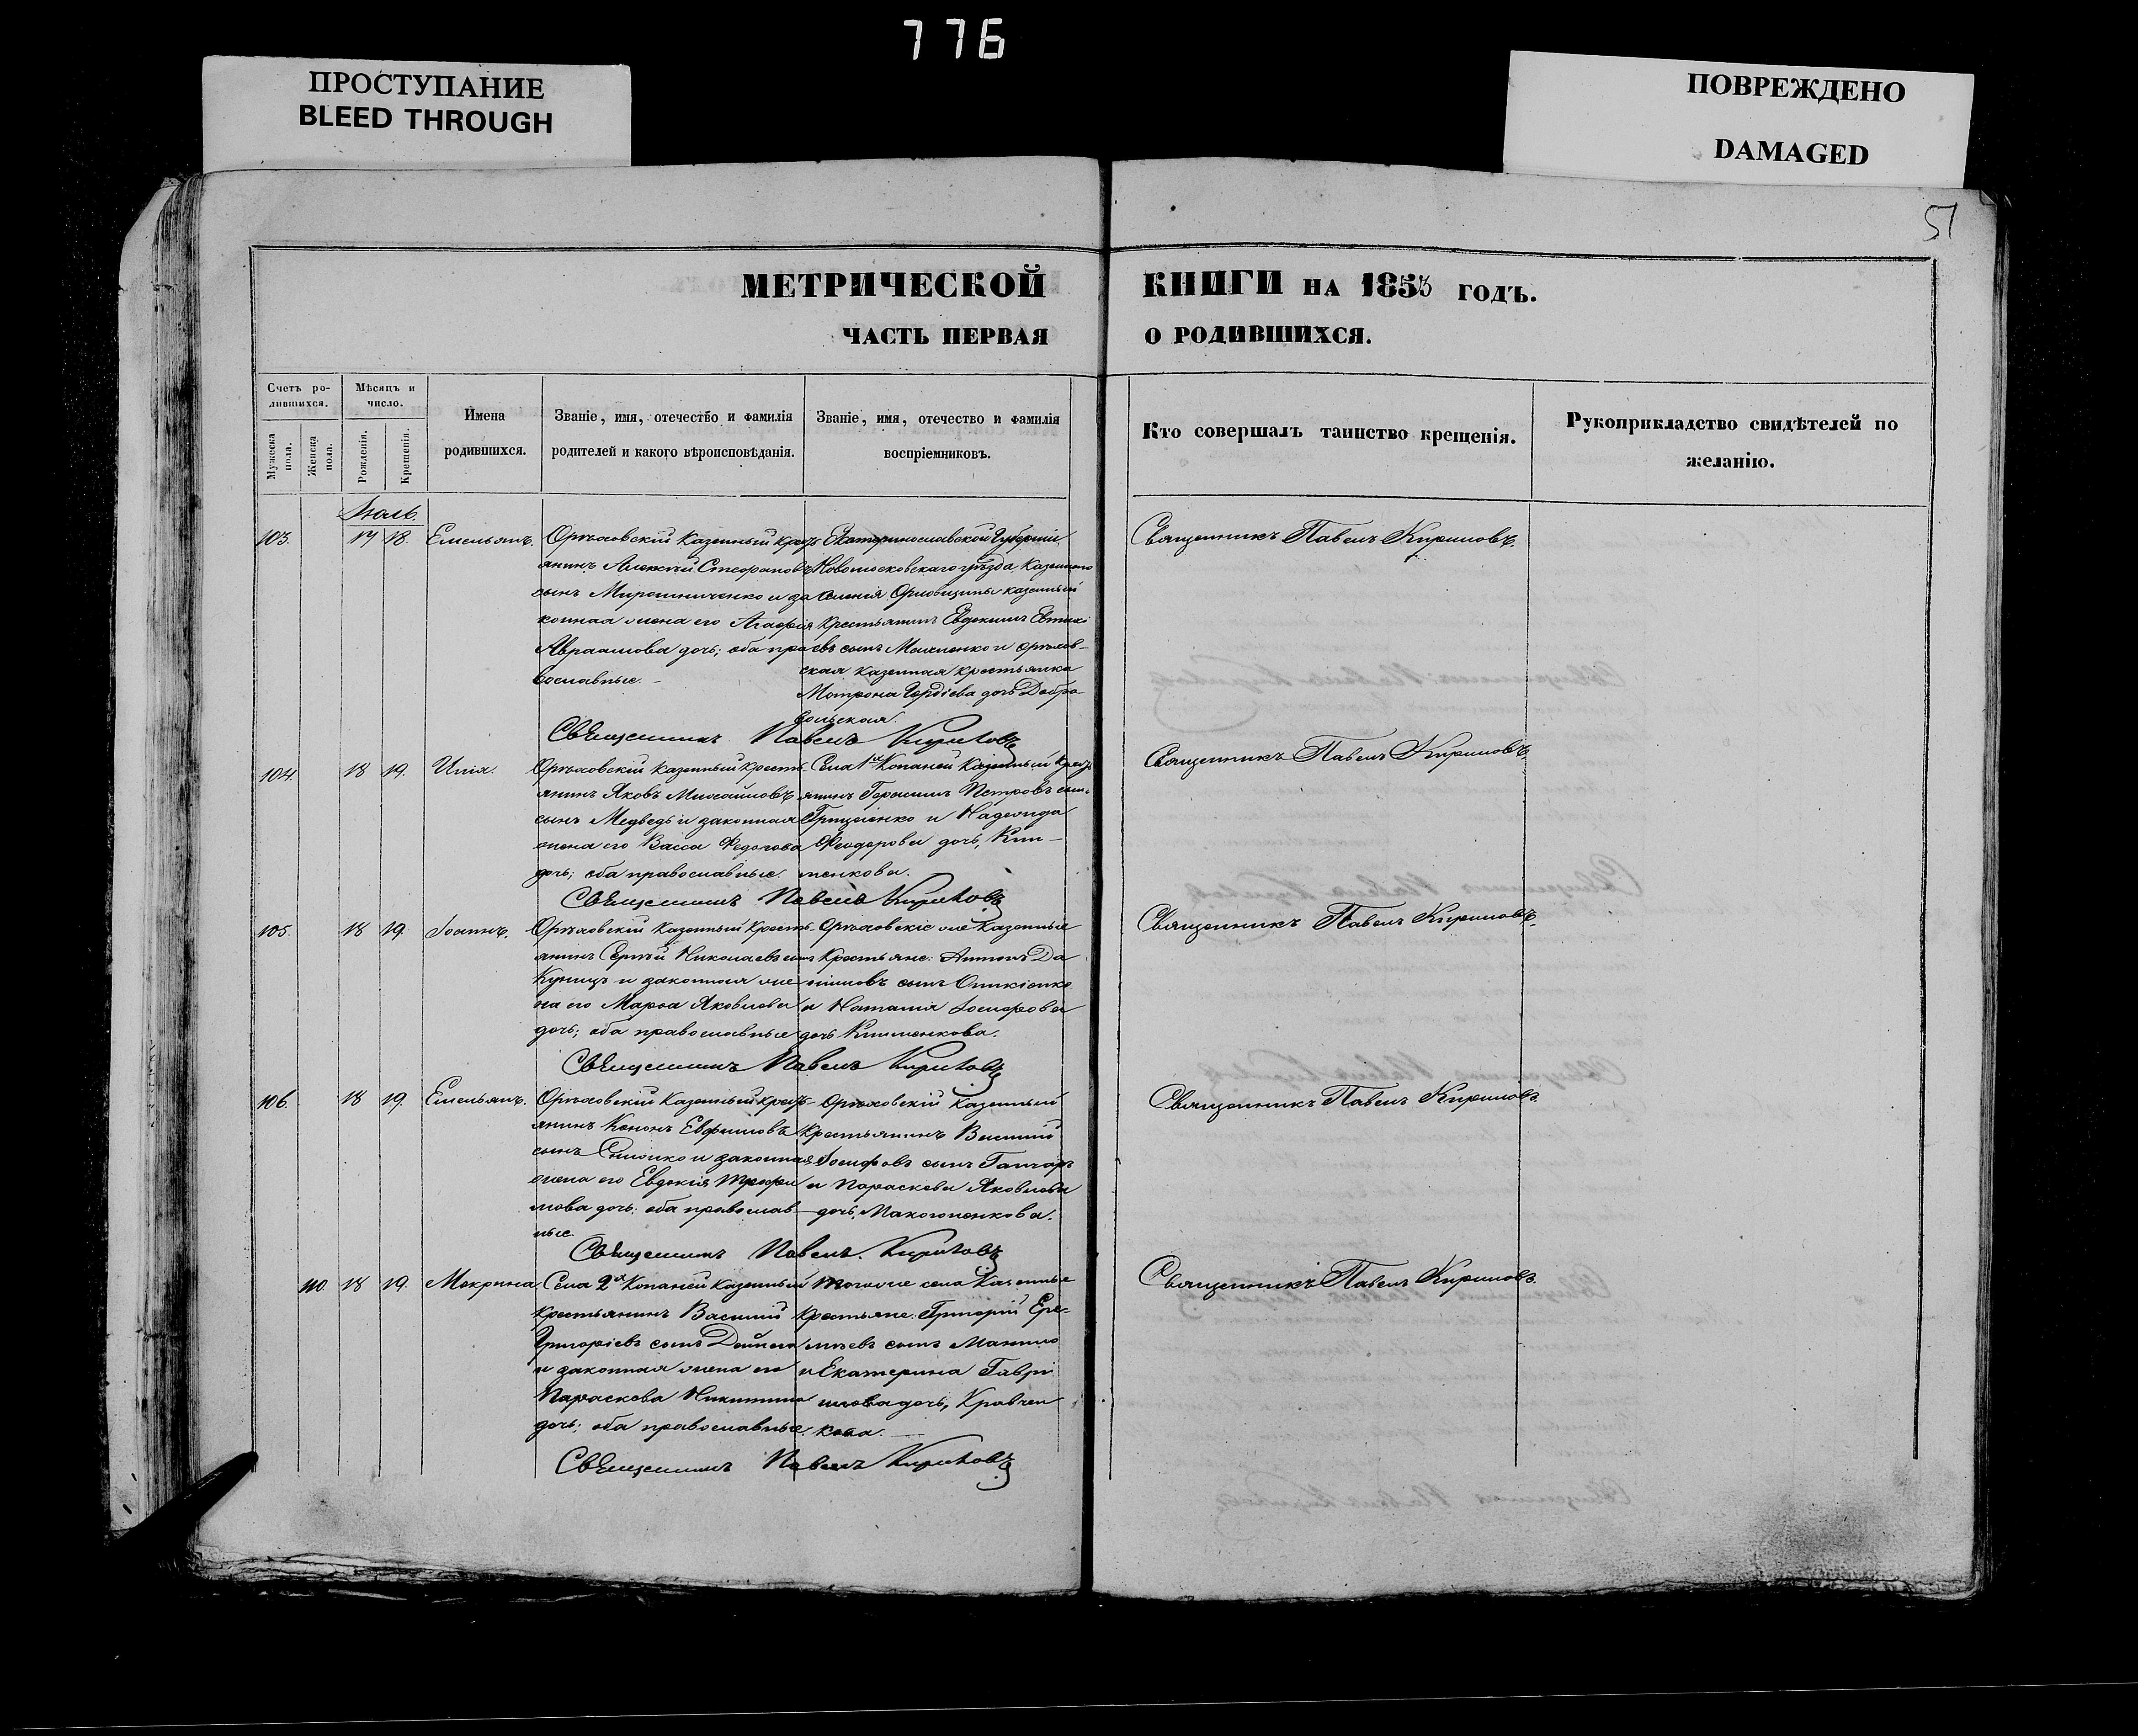 776
ПРОСТУПАНИЕ
BLEED THROUGH
ПОВРЕЖДЕНО
DAMAGED
51
МЕТРИЧЕСКОЙ КНИГИ НА 1853 ГОДЪ.
ЧАСТЬ ПЕРВАЯ О РОДИВШИХСЯ.
Счетъ ро-
дившихся.
Мужеска
пола.
Женска
пола.
Мѣсяцъ и
число.
Рожденія.
Крещенія.
Имена
родившихся.
Званіе, имя, отечество и фамилія
родителей и какого вѣроисповѣданія.
Званіе, имя, отечество и фамилія
воспріемниковъ.
Кто совершалъ таинство крещенія.
Рукоприкладство свидѣтелей по
желанію.
Іюль.
103. 17 18. Емельянъ.
Орѣховскій казенный кресть
янинъ Алексѣй Стефановъ
сынъ Мирошниченко и за
конная жена его Агафія
Авраамова дочь; оба пра
вославные.
Екатеринославской Губерніи,
Новомосковскаго уѣзда, казеннаго
селенія Орловщины казенный
крестьянинъ Евдокимъ
евъ сынъ и орѣхов-
ская казенная крестьянка
Матрона Гордіева дочь Добро-
вольская.
Священникъ Павелъ Кириловъ.
Священникъ Павелъ Кириловъ
104. 18 19. Илія.
Орѣховскій казенный кресть-
янинъ Яковъ Михайловъ
сынъ Медведь и законная
жена его Васса Федорова
дочь; оба православные.
Села 1хъ Копаней казенный кресть
янинъ Герасимъ Петровъ сынъ
Грищенко и Надежда
Феодорова дочь, Кли-
менкова.
Священникъ Павелъ Кириловъ
Священникъ Павелъ Кириловъ
105. 18 19. Іоаннъ.
Орѣховскій казенный кресть-
янинъ Сергѣй Николаевъ сынъ
Куницъ и законная же
на его Марфа Яковлева
дочь; оба православные
Орѣховскіе же казенные
крестьяне: Антонъ Да
ниловъ сынъ
и Наталія Іосифова
дочь Клименкова.
Священникъ Павелъ Кириловъ.
Священникъ Павелъ Кириловъ
106. 18 19. Емельянъ.
Орѣховскій казенный кресть-
янинъ Кононъ Евфимовъ
сынъ и законная
жена его Евдокія Трофи
мова дочь; оба православ-
ные.
Орѣховскій казенный
крестьянинъ Василій
Іосифовъ сынъ Ганчаръ
и Параскева Яковлева
дочь, Макогоненкова.
Священникъ Павелъ Кириловъ.
Священникъ Павелъ. Кириловъ
110. 18 19. Макрина
Села 2хъ Копаней казенный
крестьянинъ Василій
Григоріевъ сынъ
и законная жена его
Параскева Никитина
дочь; оба православные.
Того же села казенные
крестьяне: Григорій Ере-
мѣевъ сынъ
и Екатерина Гаври
илова дочь, Кравчен
кова.
Священникъ Павелъ Кириловъ.
Священникъ Павелъ Кириловъ